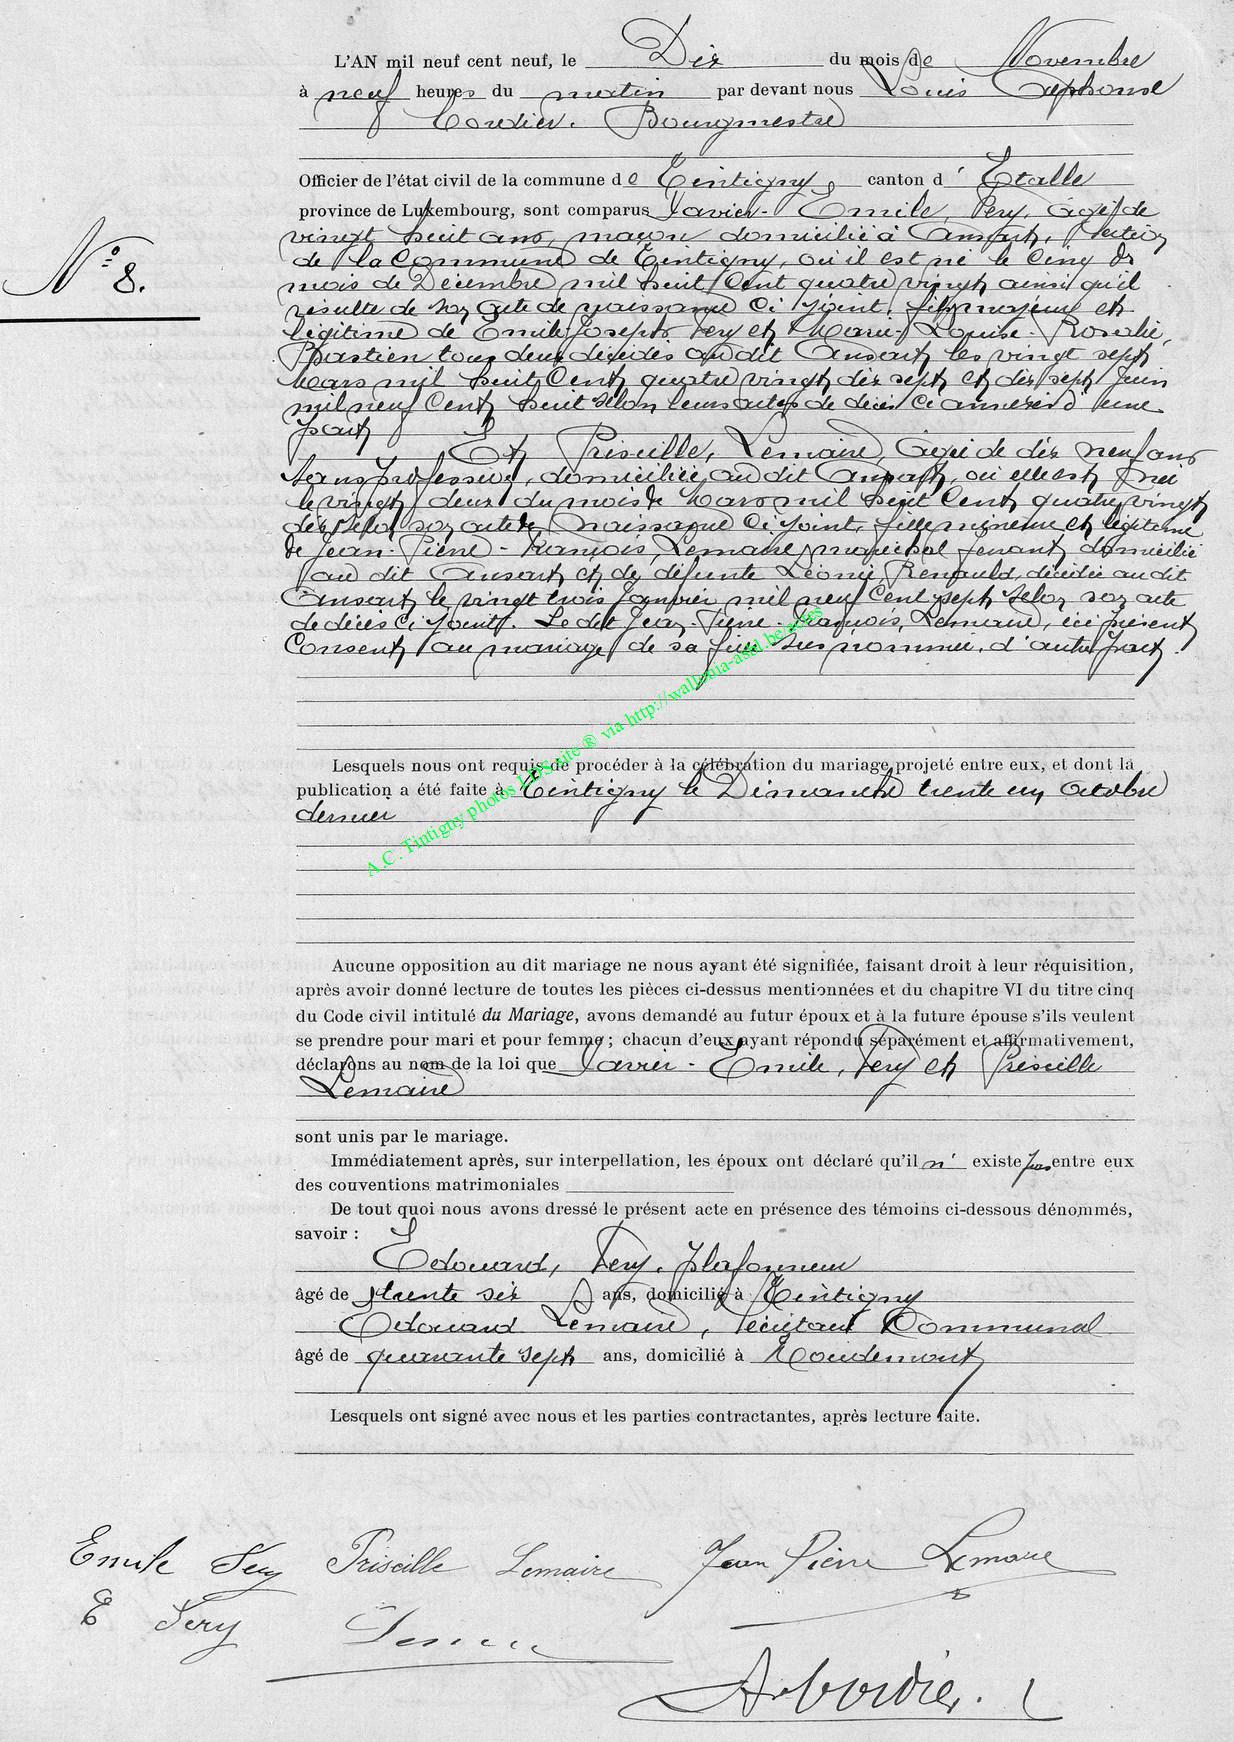 L'AN mil neuf cent neuf, le Dix du mois de Novembre
à neuf heures du matin par devant nous Louis Alphonse
Cordier. Bourgmestre
Officier de l'état civil de la commune de Tintigny, canton d'Etalle
province de Luxembourg, sont comparus Xavier-Emile, Pery, agé de
vingt huit ans, maçon domicilié à Ansart, section
de la Commune de Tintigny, où il est né le Cinq du
mois de Décembre mil huit Cent quatre vingt ainsi qu'il
résulte de son acte de naissance Ci joint. fils majeur et
légitime de Emile Joseph Pery et Marie-Louise-Rosalie,
Bastien tous deux décédés audit Ansart les vingt sept
Mars mil huit Cent quatre vingt dix sept et dix sept Juin
mil neuf Cent huit selon leurs actes de décès Ci annexés d'une
part
Et Priscille, Lemaire, agée de dix neuf ans
sans profession, domiciliée au dit Ansart, où elle est née
le vingt deux du mois de Mars mil huit Cent quatre vingt
dix selon son acte de Naissance Ci joint, fille mineure et légitime
de Jean-Pierre-François, Lemaire, maréchal ferrant domicilié
au dit Ansart et de défunte Léonie, Renauld, décédée au dit
Ansart le vingt trois Janvier mil neuf Cent sept selon son acte
de décès Ci joint. Le dit Jean-Pierre-François, Lemaire, ici présent
Consent au mariage de sa fille sus nommée. d'autre part.
N° 8.
Lesquels nous ont requis de procéder à la célébration du mariage projeté entre eux, et dont la
publication a été faite à Tintigny le Dimanche trente un Octobre
dernier
A.C. Tintigny photos LDS site ® via http://wallonia-asbl.be/actes
Aucune opposition au dit mariage ne nous ayant été signifiée, faisant droit à leur réquisition,
après avoir donné lecture de toutes les pièces ci-dessus mentionnées et du chapitre VI du titre cinq
du Code civil intitulé du Mariage, avons demandé au futur époux et à la future épouse s'ils veulent
se prendre pour mari et pour femme ; chacun d'eux ayant répondu séparément et affirmativement,
déclarons au nom de la loi que Xavier-Emile, Pery et Priscille
Lemaire
sont unis par le mariage.
Immédiatement après, sur interpellation, les époux ont déclaré qu'il n' existe pas entre eux
des conventions matrimoniales
De tout quoi nous avons dressé le présent acte en présence des témoins ci-dessous dénommés,
savoir :
Edouard, Pery, plafonneur
âgé de trente six ans, domicilié à Tintigny
Edouard Lemaire, secrétaire Communal
âgé de quarante sept ans, domicilié à Houdemont
Lesquels ont signé avec nous et les parties contractantes, après lecture faite.
Emile Pery Priscille Lemaire Jean Pierre Lemaire
E Pery
A. Cordier.